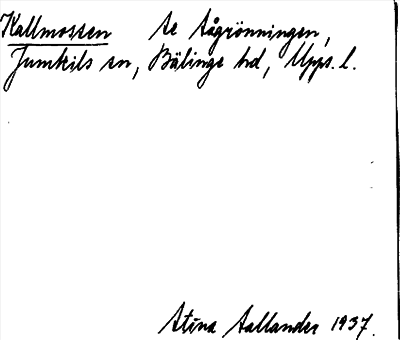 Kallmossen se Sågrönningen,
Jumkils sn, Bälinge hd, Upps. l.
Stina Sallander 1937.